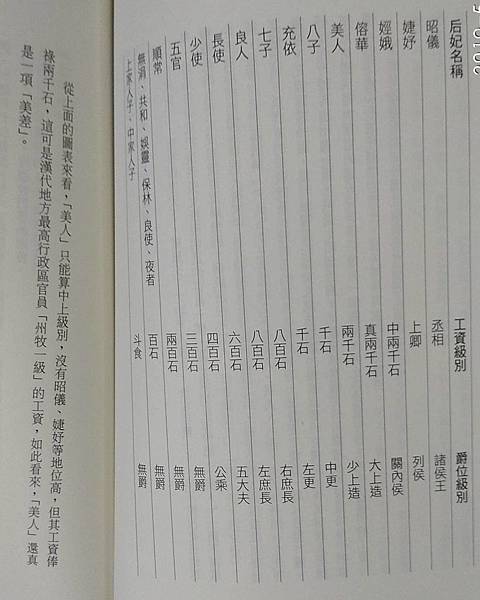 后妃名稱 工資級別 爵位級別
昭儀 丞相 諸侯王
婕妤 上卿 列侯
娙娥 中兩千石 關內侯
傛華 真兩千石 大上造
美人 兩千石 少上造
八子 千石 中更
充依 千石 左更
七子 八百石 右庶長
良人 八百石 左庶長
長使 六百石 五大夫
少使 四百石 公乘
五官 三百石 無爵
順常 兩百石 無爵
無涓、共和、娛靈、保林、良使、夜者 百石 無爵
上家人子、中家人子 斗食 無爵
從上面的圖表來看，「美人」只能算中上級別，沒有昭儀、婕妤等地位高，但其工資俸
祿兩千石，這可是漢代地方最高行政區官員「州牧一級」的工資，如此看來，「美人」還真
是一項「美差」。